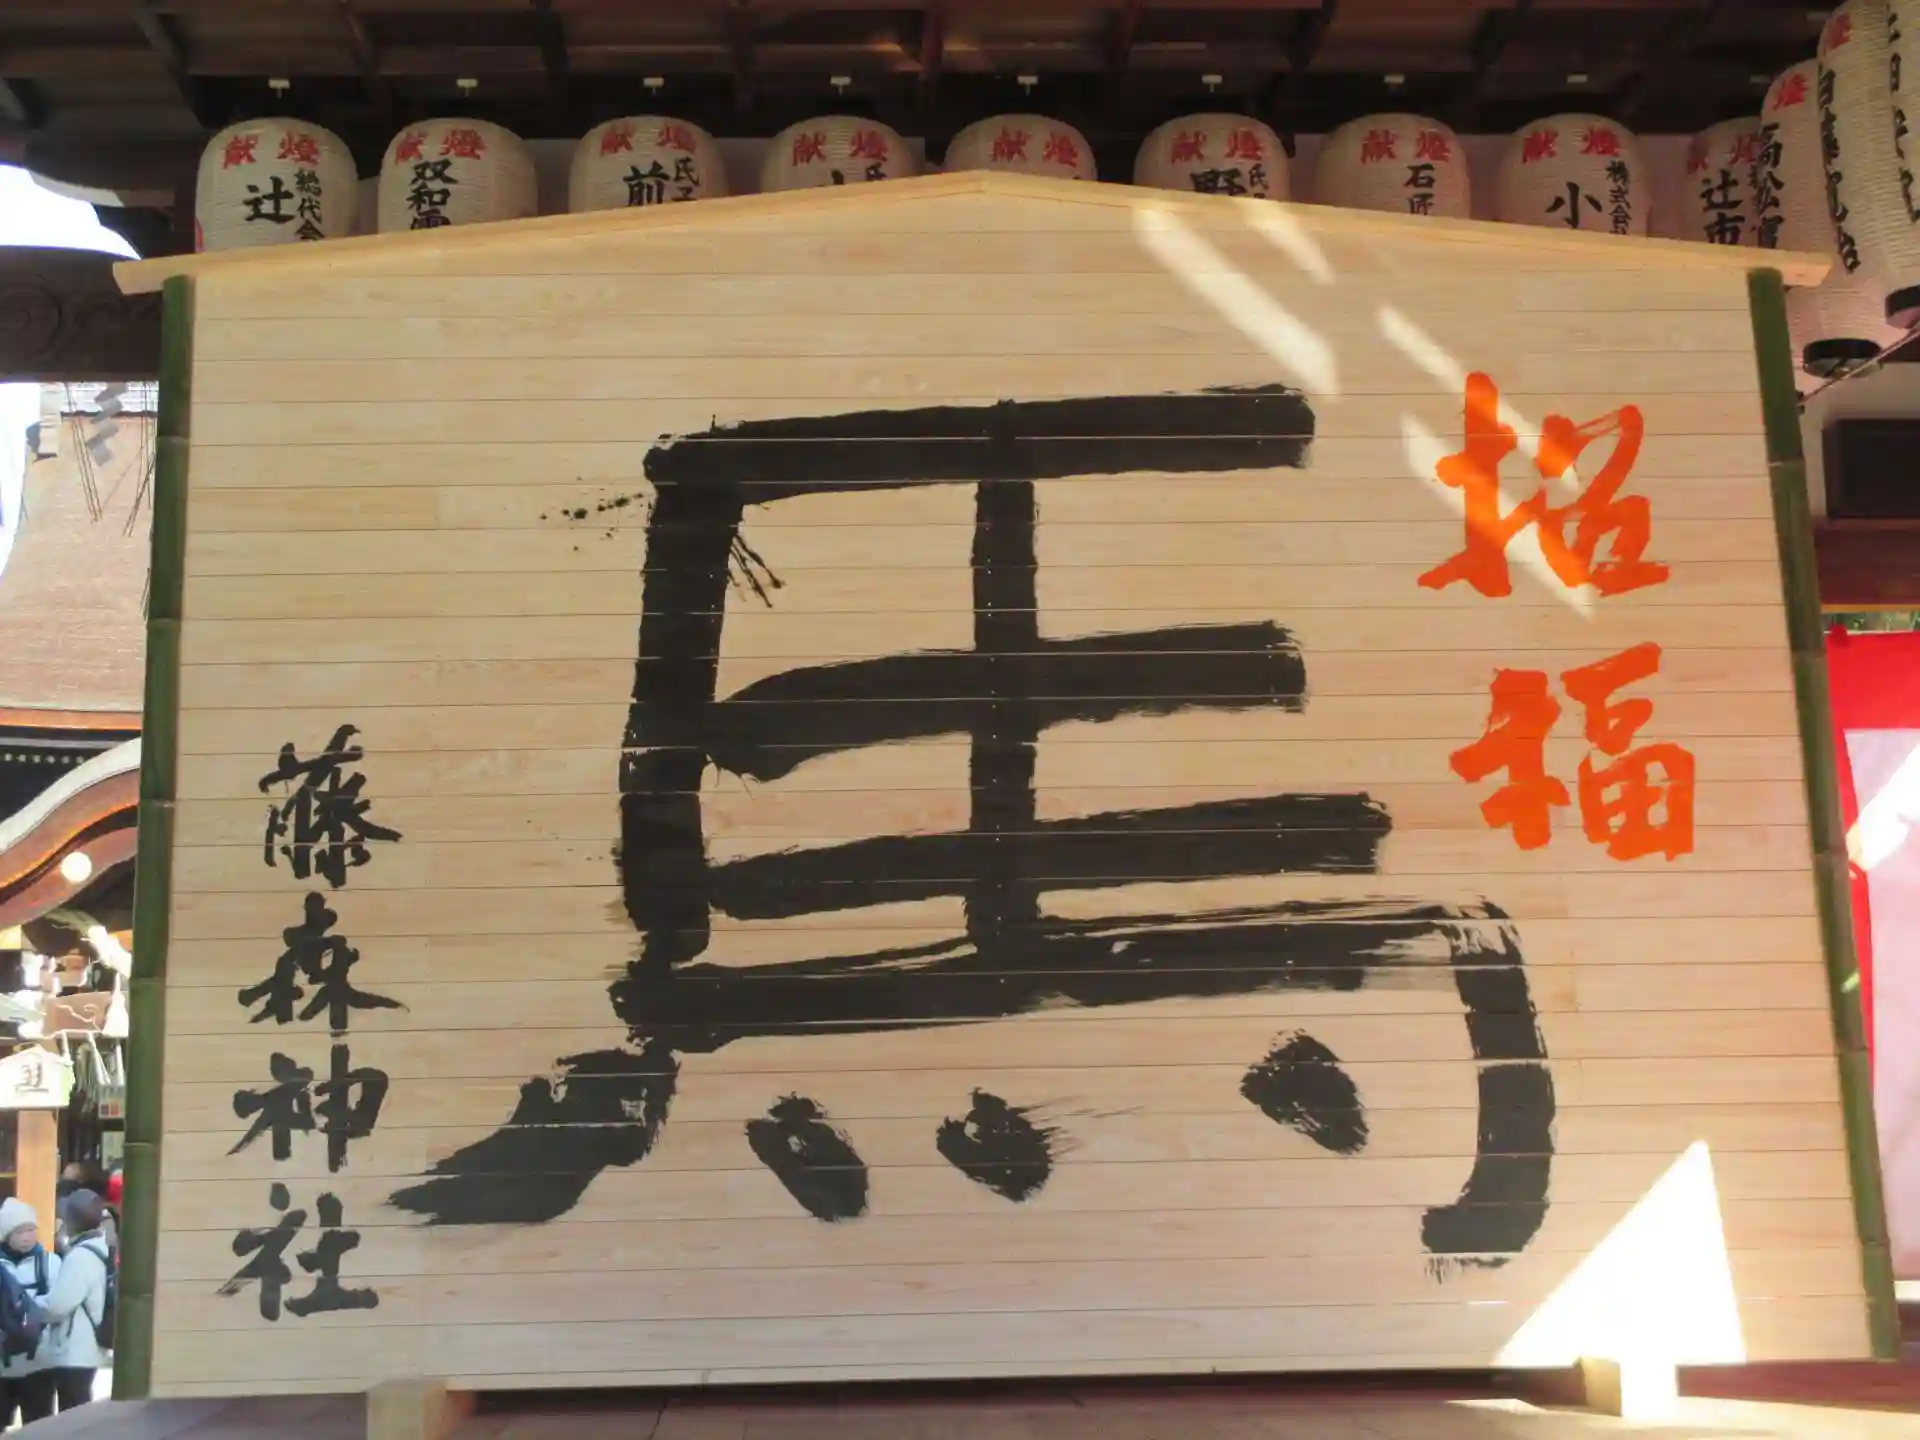 献燈
総代会
辻
献燈
双和
献燈
氏子
前
献燈
献燈
献燈
野
献燈
石匠
献燈
株式会社
小
献燈
辻市
招福
馬
藤森神社